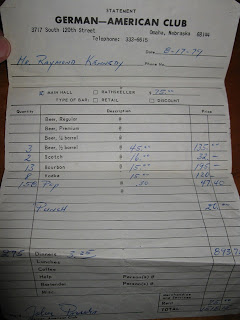 STATEMENT
GERMAN—AMERICAN CLUB
3717 South 120th Street Omaha, Nebraska 68144
Telephone: 333-6615
Date 8-17-79
Mr. Raymond Kennedy Phone No.
MAIN HALL RATSKELLER $75.00
TYPE OF BAR: RETAIL DISCOUNT
Quantity Description Price
Beer, Regular @
Beer, Premium @
3 Beer, ½ barrel @ 45.00 135
2 Scotch @ 16.00 32
13 Bourbon @ 15.00 195
Vodka @ 15.00
158 Pop @ .30 47.40
Punch 20
Dinners 3.25
Lunches
Coffee
Hole Person(s) @
Bartender Person(s) @
Misc.
Rent
TOTAL